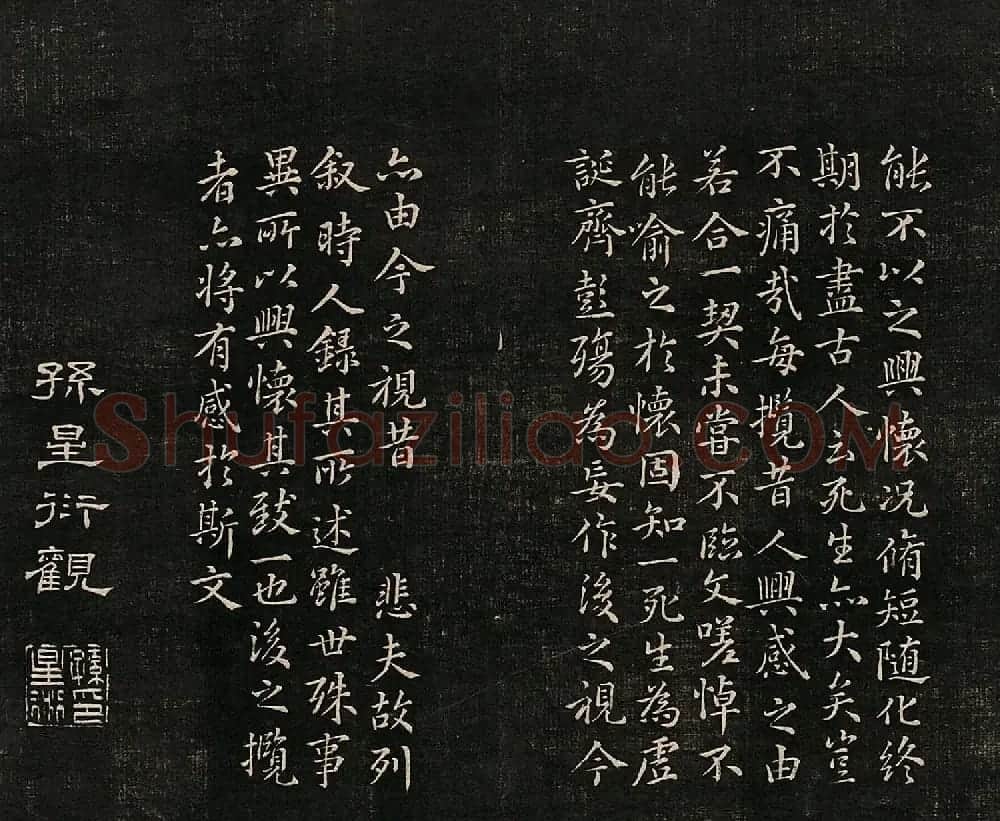 能不以之興懷况脩短随化終
期於盡古人云死生亦大矣豈
不痛哉每攬昔人興感之由
若合一契未嘗不臨文嗟悼不
能喻之於懷固知一死生為虛
誕齊彭殤為妄作後之視今
亦由今之視昔 悲夫故列
叙時人録其所述雖世殊事
異所以興懷其致一也後之攬
者亦将有感於斯文
孫星衍觀
孫印星衍
Shufaziliao.COM